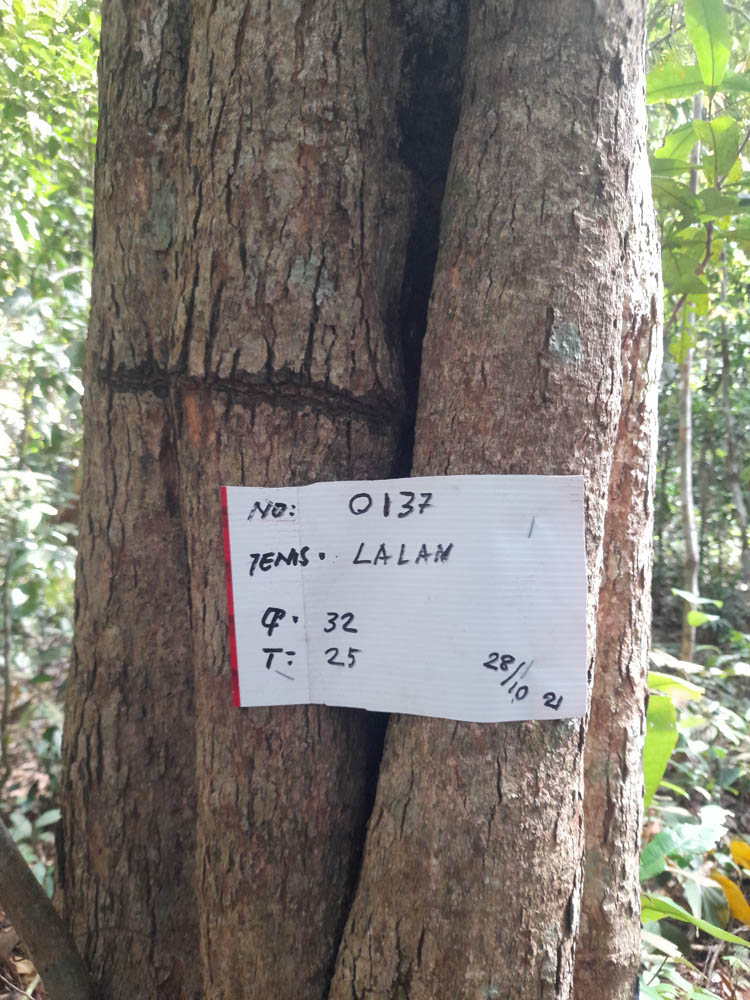 NO: 0137
JENIS. LALAN
φ. 32
T: 25
28/10 21